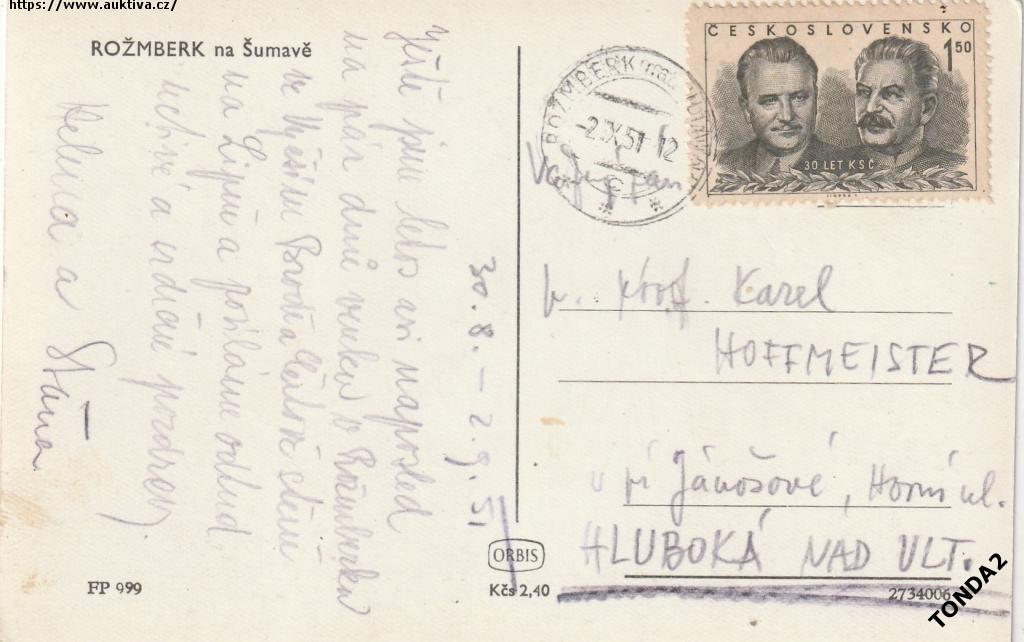 https://www.auktiva.cz/
ROŽMBERK na Šumavě
Ještě jsme letos asi naposled
na pár dnů venku v Rožmberku
ve Vyšším Brodě a
na Lipně a posíláme odtud
uctivé a srdečné pozdravy
Helena a
30. 8. – 2. 9. 51
FP 999
ORBIS
Kčs 2,40
ČESKOSLOVENSKO
1,50
30 LET KSČ
ROŽMBERK nad VLTAVOU
-2.IX.51-12
prof. Karel
HOFFMEISTER
u pí Jánošové, Horní ul.
HLUBOKÁ NAD VLT.
2734006
TONDA2